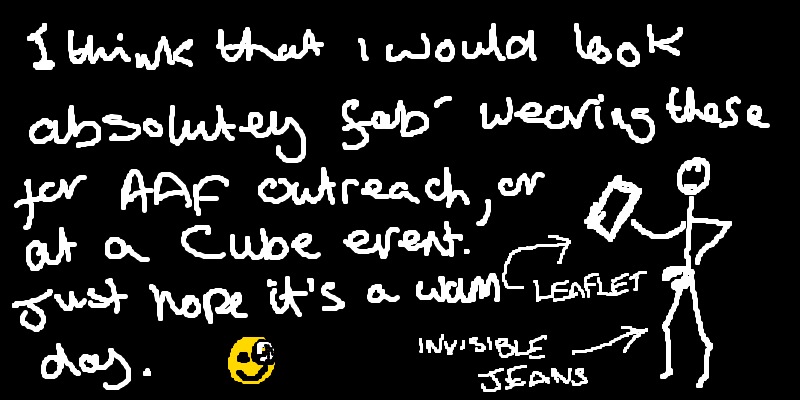 I think that i would look
absolutey fab wearing these
for AAF outreach, or
at a Cube event.
Just hope it's a wam
day.
LEAFLET
INVISIBLE
JEANS